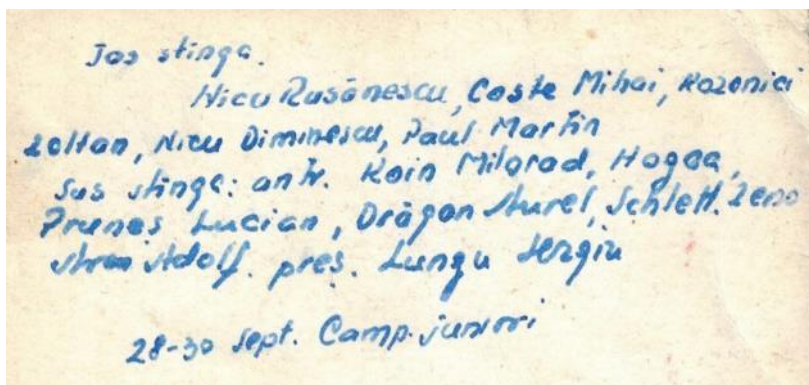 Jos stînga.
Nicu Rusănescu, Coste Mihai, Kozonici
Zoltan, Nicu Diminescu, Paul Martin
Sus stînga: antr. Koin Milorad, Hogea,
Prunes Lucian, Drăgan Aurel, Schlett. Zeno
Adolf. pres. Lungu Sergiu
28-30 Sept. Camp. juniori